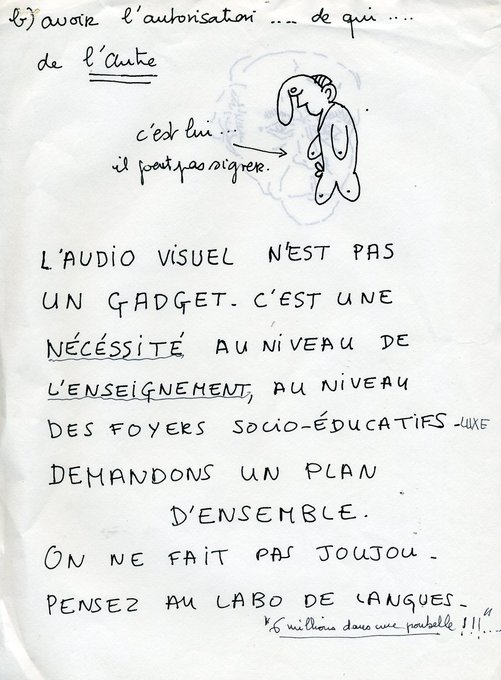 b) avoir l'autorisation .... de qui ....
de l'Autre
c'est lui ...
il peut pas signer.
L'AUDIO VISUEL N'EST PAS
UN GADGET. C'EST UNE
NÉCÉSSITÉ AU NIVEAU DE
L'ENSEIGNEMENT, AU NIVEAU
DES FOYERS SOCIO-ÉDUCATIFS -LUXE
DEMANDONS UN PLAN
D'ENSEMBLE.
ON NE FAIT PAS JOUJOU -
PENSEZ AU LABO DE LANGUES -
"6 millions dans une poubelle !!!"....